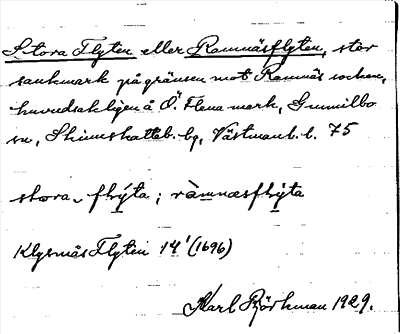 Stora Flyten eller Ramnäsflyten, stor
sankmark på gränsen mot Ramnäs socken,
huvudsakligen å Ö. Flena mark, Gunnilbo
sn, Skinnskatteb. bg, Västmanl. l. 75
stora flýta; ràmnæsflýta
Klysnäs Flyten 14' (1696)
Karl Björkman 1929.